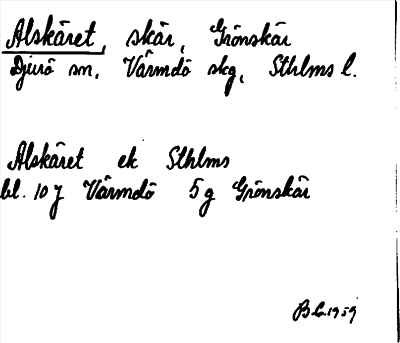 Alskäret, skär, Grönskär
Djurö sn, Värmdö skg, Sthlms l.
Alskäret ek Sthlms
bl. 10 J Värmdö 5 g Grönskär
B.C. 1959